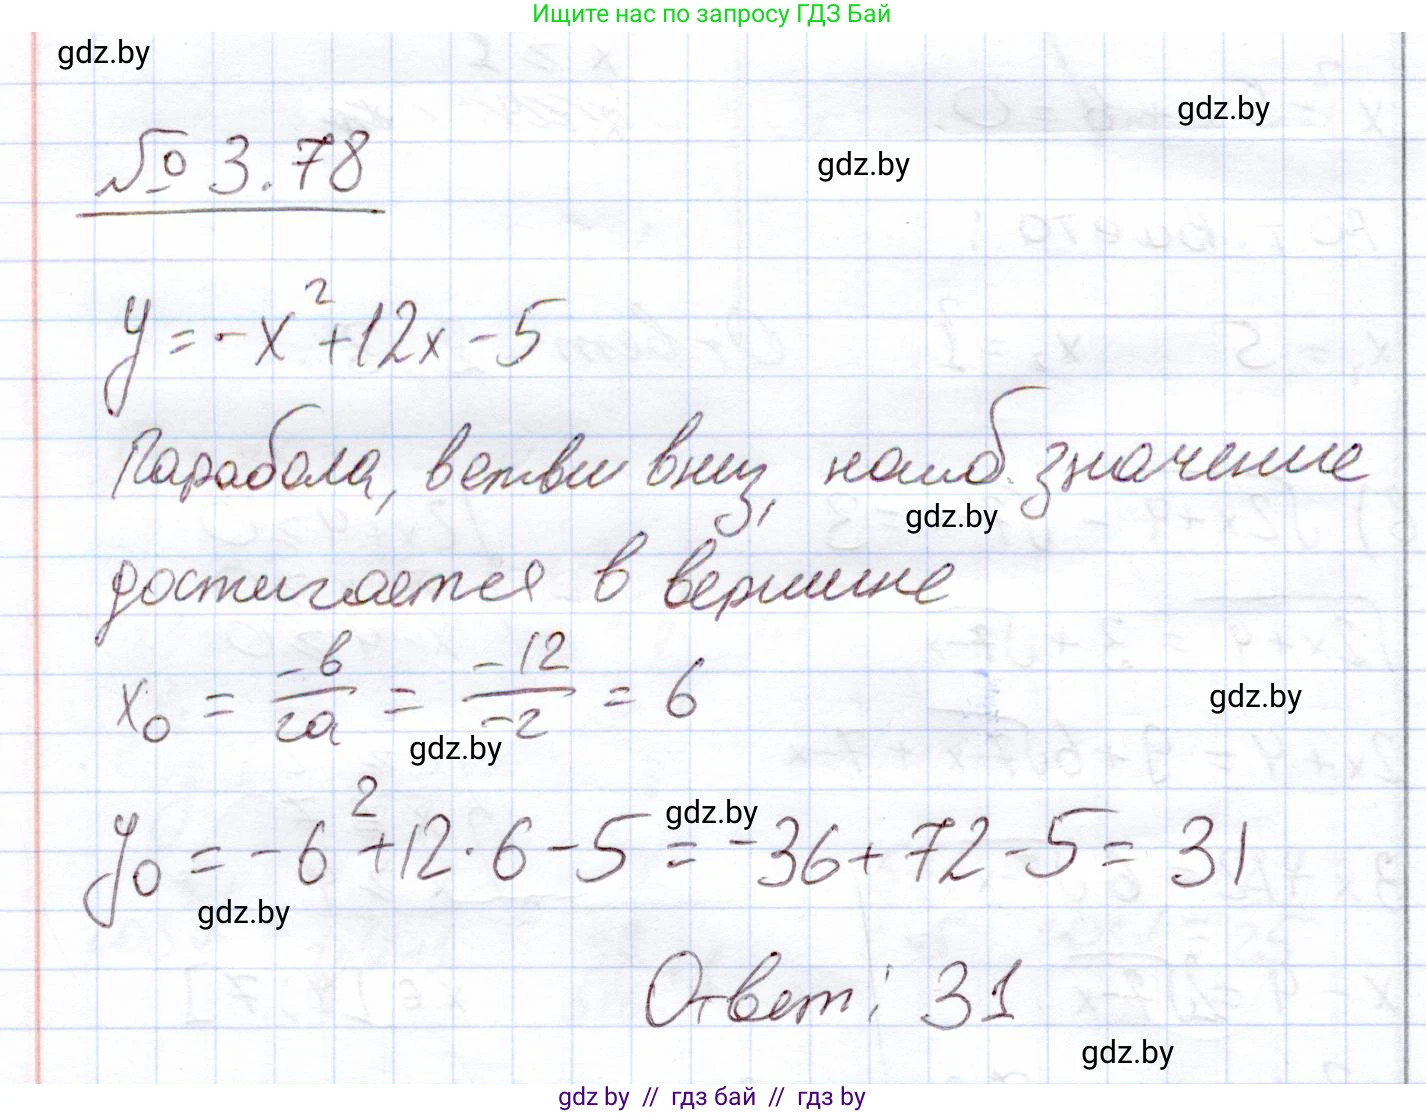 Ищите нас по запросу ГДЗ Бай
gdz.by
gdz.by
gdz.by
№ 3.78
y = -x² + 12x - 5
Парабола, ветви вниз, наиб. значение
gdz.by
достигается в вершине
x₀ = -в/2a = -12/-2 = 6
gdz.by
gdz.by
gdz.by
y₀ = -6² + 12 · 6 - 5 = -36 + 72 - 5 = 31
gdz.by
Ответ: 31
gdz.by
gdz by // гдз бай // гдз by